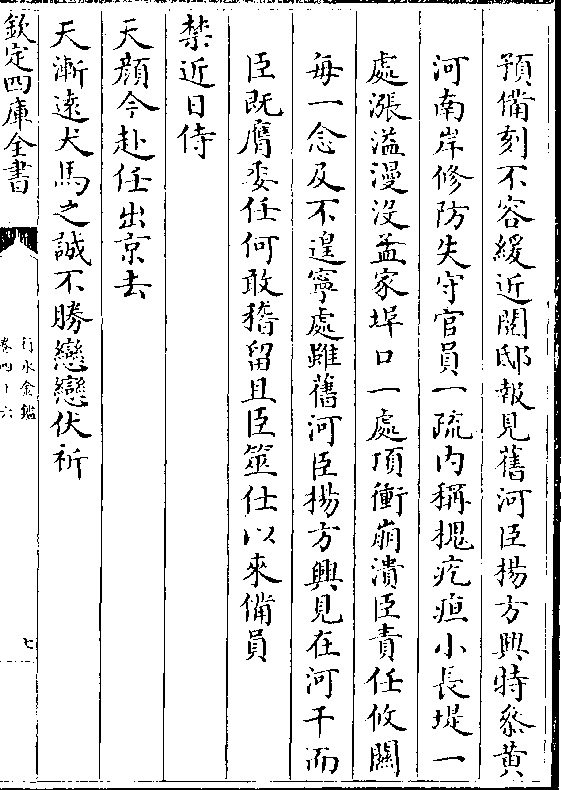 預備刻不容緩近閱邸報見舊河臣楊方興特叅黃
河南岸修防失守官員一疏内稱槐疙疸小長堤一
處漲溢漫没孟家埠口一處頂衝崩潰臣責任攸關
每一念及不遑寧處雖舊河臣楊方興見在河干而
臣既膺委任何敢稽留且臣筮仕以來備員
禁近日侍
天顔今赴任出京去
天漸逺犬馬之誠不勝戀戀伏祈
欽定四庫全書
行水金鑑
卷四十六
七